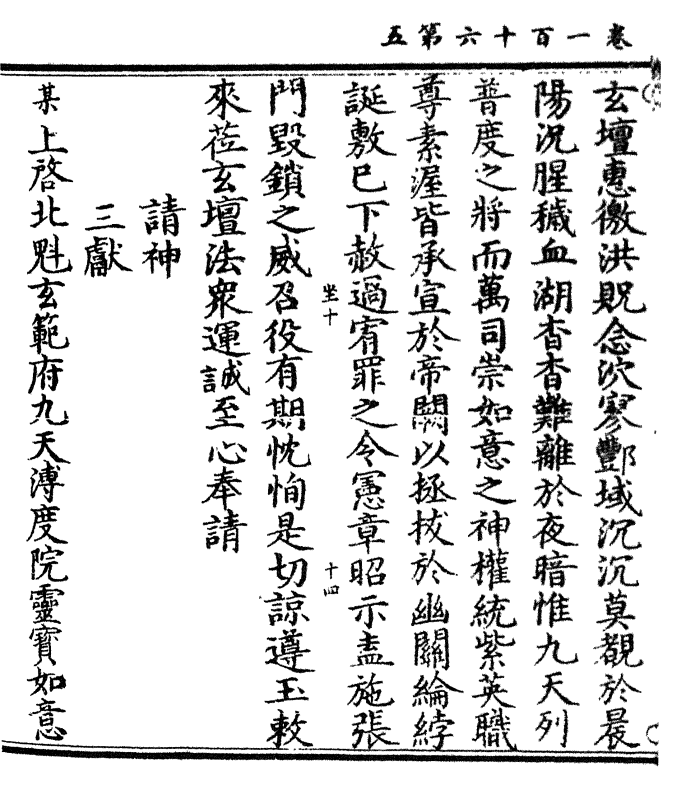 卷一百十六第五
玄壇惠徼洪貺念泬寥酆域沉沉莫覩於晨
陽況腥穢血湖杳杳難離於夜暗惟九天列
普度之將而萬司崇如意之神權統紫英職
尊素渥皆承宣於帝闕以拯拔於幽關綸綍
誕敷巳下赦過宥罪之令憲章昭示盍施張
門毀鎖之威召役有期忱恂是切諒遵玉敕
來莅玄壇法衆運誠至心奉請
請神
三獻
某上啓北魁玄範府九天溥度院靈寶如意
坐十
十四